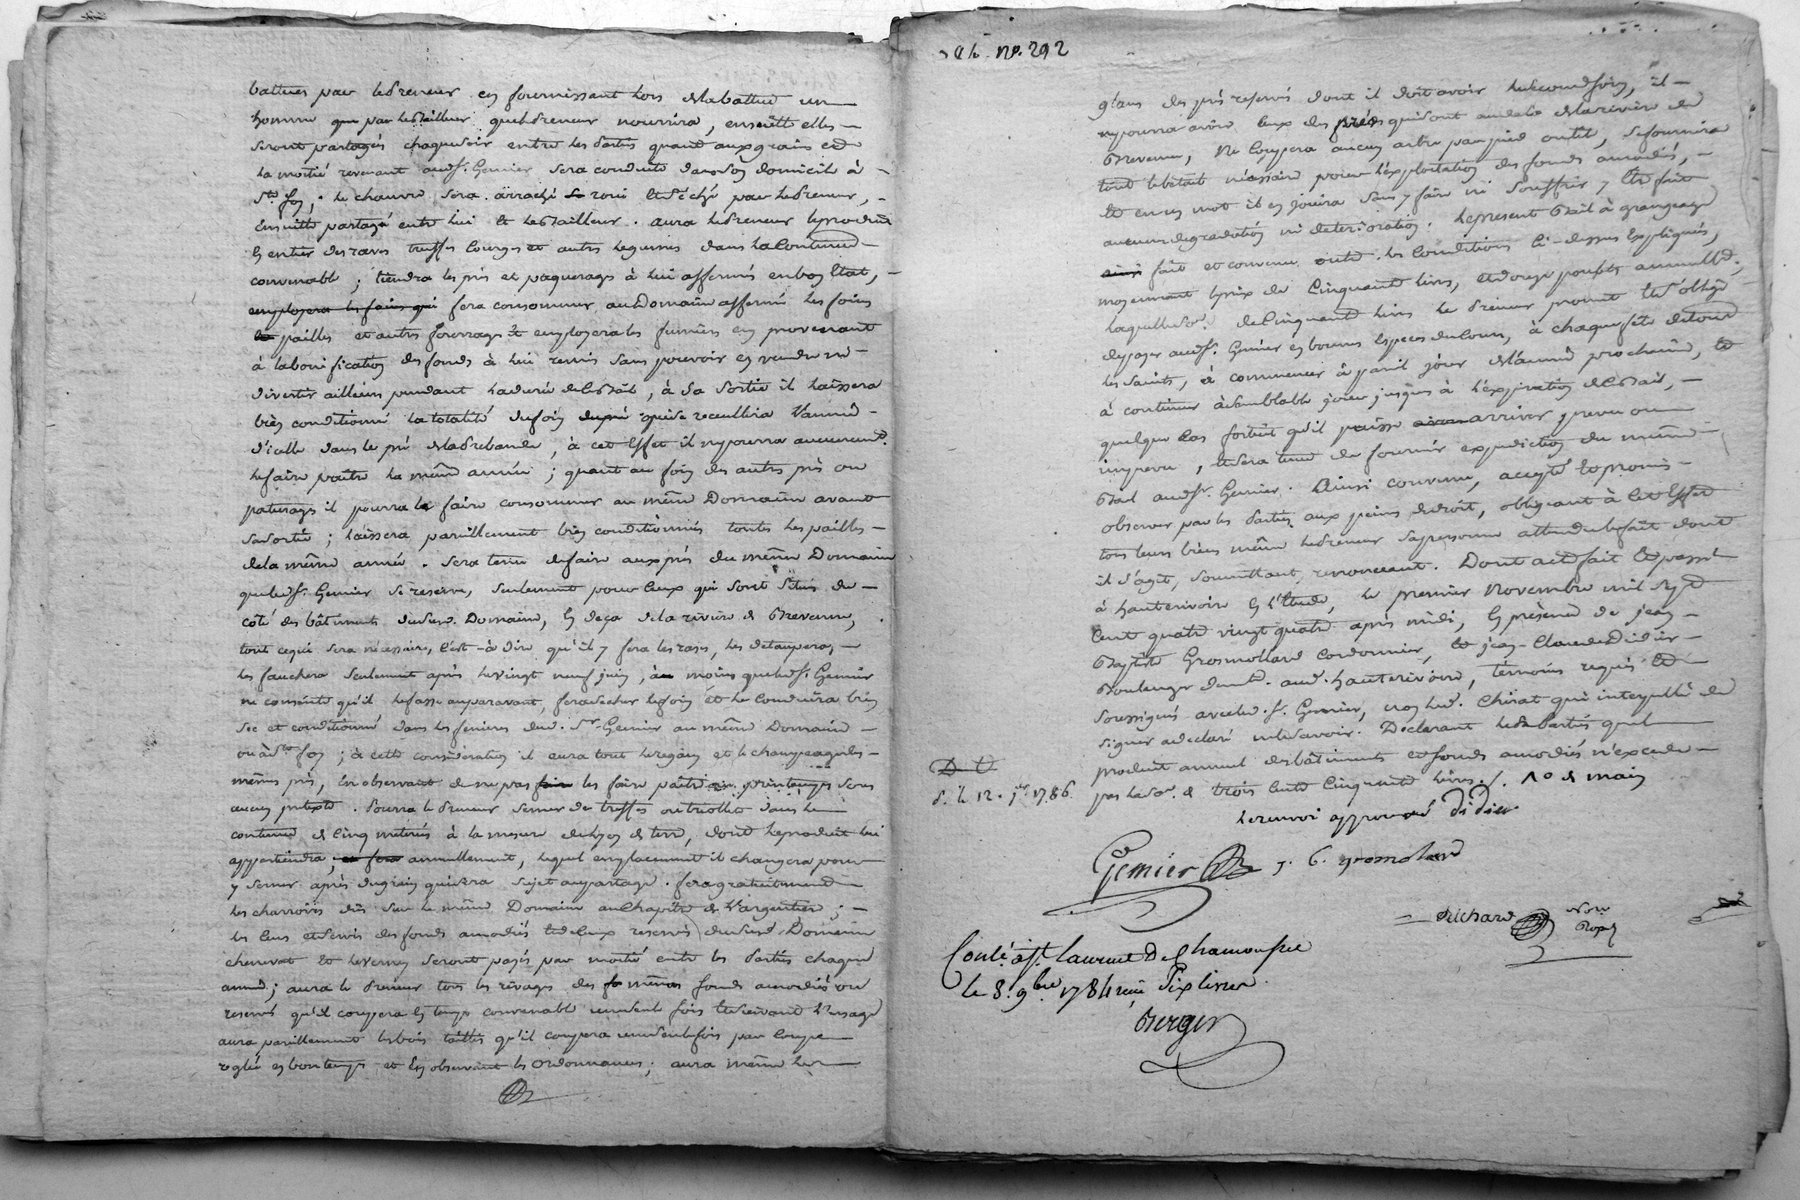 battues par le Preneur en fournissant lors de la battue un
homme par le Bailleur que le Preneur nourrira, ensuitte elles
seront partagés chaque soir entre les Parties quant aux grains et
la moitié revenant aud. Sr. Gemier sera conduite dans son domicile à
Ste. foy ; le chanvre sera arraché roui et séché par le Preneur,
Ensuitte partagé entre lui et le Bailleur. aura le Preneur le produit
En entier des raves truffes Courges et autres legumes dans la Contenue
convenable ; tiendra les prés et paquerages à lui affermés en bon Etat,
employera les foins qui fera consommer au Domaine affermé les foins
pailles et autres fourrages et employera les fumiers en provenant
à la bonification des fonds à lui remis sans pouvoir en vendre ni
divertir ailleurs pendant la durée de ce Bail, à Sa Sortie il laissera
bien conditionné la totalité du foin qui se recueillira l'année
d'icelle dans le pré de la Prebande, à cet Effet il ny pourra aucunemt.
le faire paitre la même année ; quant au foin des autres prés ou
paturages il pourra le faire consommer au même Domaine avant
sa sortie ; laissera pareillement bien conditionnés toutes les pailles
de la même année. Sera tenu de faire aux prés du même Domaine
que led. Sr. Gemier Se reserve, seulement pour Ceux qui sont situés du
côté des bâtiments dud. Domaine, En deça de la rivière de Brevenne,
tout ce qui sera nécessaire, C'est-à-dire qu'il y fera les rases, les détaupera,
les fauchera Seulement après le vingt neuf juin, à moins que led. Sr. Gemier
ne consente qu'il le fasse auparavant, fera secher le foin et le Conduira bien
Sec et conditionné dans les fenieres dud. Sr. Gemier au même Domaine
ou à Ste. foy ; à cette considération il aura tout le regain et le champeage des
mêmes prés, En observant de ne pas les faire paitre au printemps sous
aucun pretexte. Pourra le Preneur semer de treffes ou triolle dans la
contenue de Cinq métérés à la mesure de Lyon de terre, dont le produit lui
appartiendra annuellement, lequel emplacement il changera pour
y semer après du grain qui sera sujet au partage. fera gratuitement
les charrois dûs sur le même Domaine au Chapitre de l'argentière ;
les Cens et servis des fonds amodiés et de Ceux reservés dud. Domaine
seront payés par moitié entre les Parties chaque
année ; aura le Preneur tous les rivages des mêmes fonds amodiés ou
reservés qu'il coupera En temps convenable une seule fois et suivant l'usage
aura pareillement les bois taillis qu'il coupera une seule fois par Coupe
reglée en bon temps et En observant les Ordonnances ; aura même les
No. 292
glans des prés reservés dont il doit avoir le second foin, il
ny pourra avoir Ceux des prés qui sont au dela de la rivière de
Brevenne, Ne Coupera aucun arbre par pied ou tête, se fournira
tout le bétail nécessaire pour l'exploitation des fonds amodiés,
Et en un mot il en jouira Sans y faire ni Souffrir y être fait
aucune degradation ni deterioration. le present Bail à grangeage
fait et convenu outre les Conditions Ci-dessus Expliquées,
moyennant le prix de Cinquante livres, et douze poulets annuellemt.,
laquelle So. de Cinquante livres le Preneur promet et s'oblige
de payer aud. Sr. Gemier en bonnes Especes du Cours, à chaque fête de tous
les Saints, à commencer à pareil jour de l'année prochaine, et
à continuer à Semblable jour jusqu'à l'expiration de ce Bail,
quelque Cas fortuit qu'il puisse arriver prevu ou
imprevu, et sera tenu de fournir expedition du même
Bail aud. Sr. Gemier. Ainsi convenu, accepté et promis
observer par les Parties aux peines de droit, obligeant à Cet Effet
tous leurs biens même le Preneur sa personne attendu le fait dont
il s'agit, soumettant, renonceant. Dont acte fait et passé
à hauterivoire En l'Etude, le premier Novembre mil sept
Cent quatre vingt quatre après midi, En présence de jean
Baptiste Grosmollard Cordonnier, et jean-Claude Didier
Boulanger demt. aud. hauterivoire, témoins requis et
Soussignés avec led. Sr. Gemier, non led. Chirat qui interpellé de
signer a declaré ne le savoir. Declarant lesd. Parties que le
produit annuel des bâtiments et fonds amodiés n'excede
pas la So. de trois Cents Cinquante livres./. 1o. de main
le renvoi approuvé Didier
D. l. 12. 1786
Gemier J. B. gromolard
Richard Nore
Royal
Conlé. à St. Laurent De Chamousset
le 8. 9bre 1784 reçu Dix livres
Berger